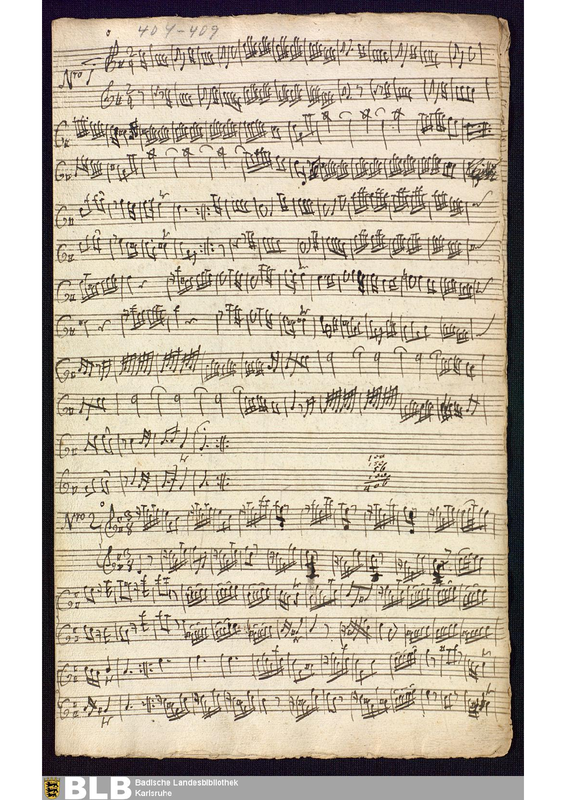 404-409
Nro 1
Nro 2
BLB Badische Landesbibliothek
Karlsruhe